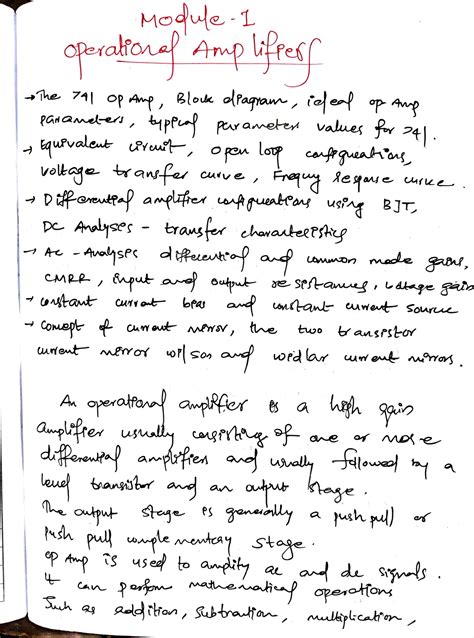 Module - 1
Operational Amplifiers
→ The 741 Op Amp, Block diagram, ideal op Amp
parameters, typical parameter values for 741.
→ Equivalent circuit, open loop configurations,
voltage transfer curve, Frequency response curve.
→ Differential amplifier configurations using BJT,
DC Analyses - transfer characteristics
→ Ac - Analyses differential and common mode gains,
CMRR, input and output resistances, voltage gain
→ constant current bias and constant current source
→ concept of current mirror, the two transistor
current mirror wilson and widlar current mirrors.
An operational amplifier is a high gain
amplifier usually consisting of one or more
differential amplifiers and usually followed by a
level transistor and an output stage.
The output stage is generally a push pull or
push pull complementary stage.
op Amp is used to amplify ac and dc signals.
It can perform mathematical operations
Such as addition, subtraction, multiplication,